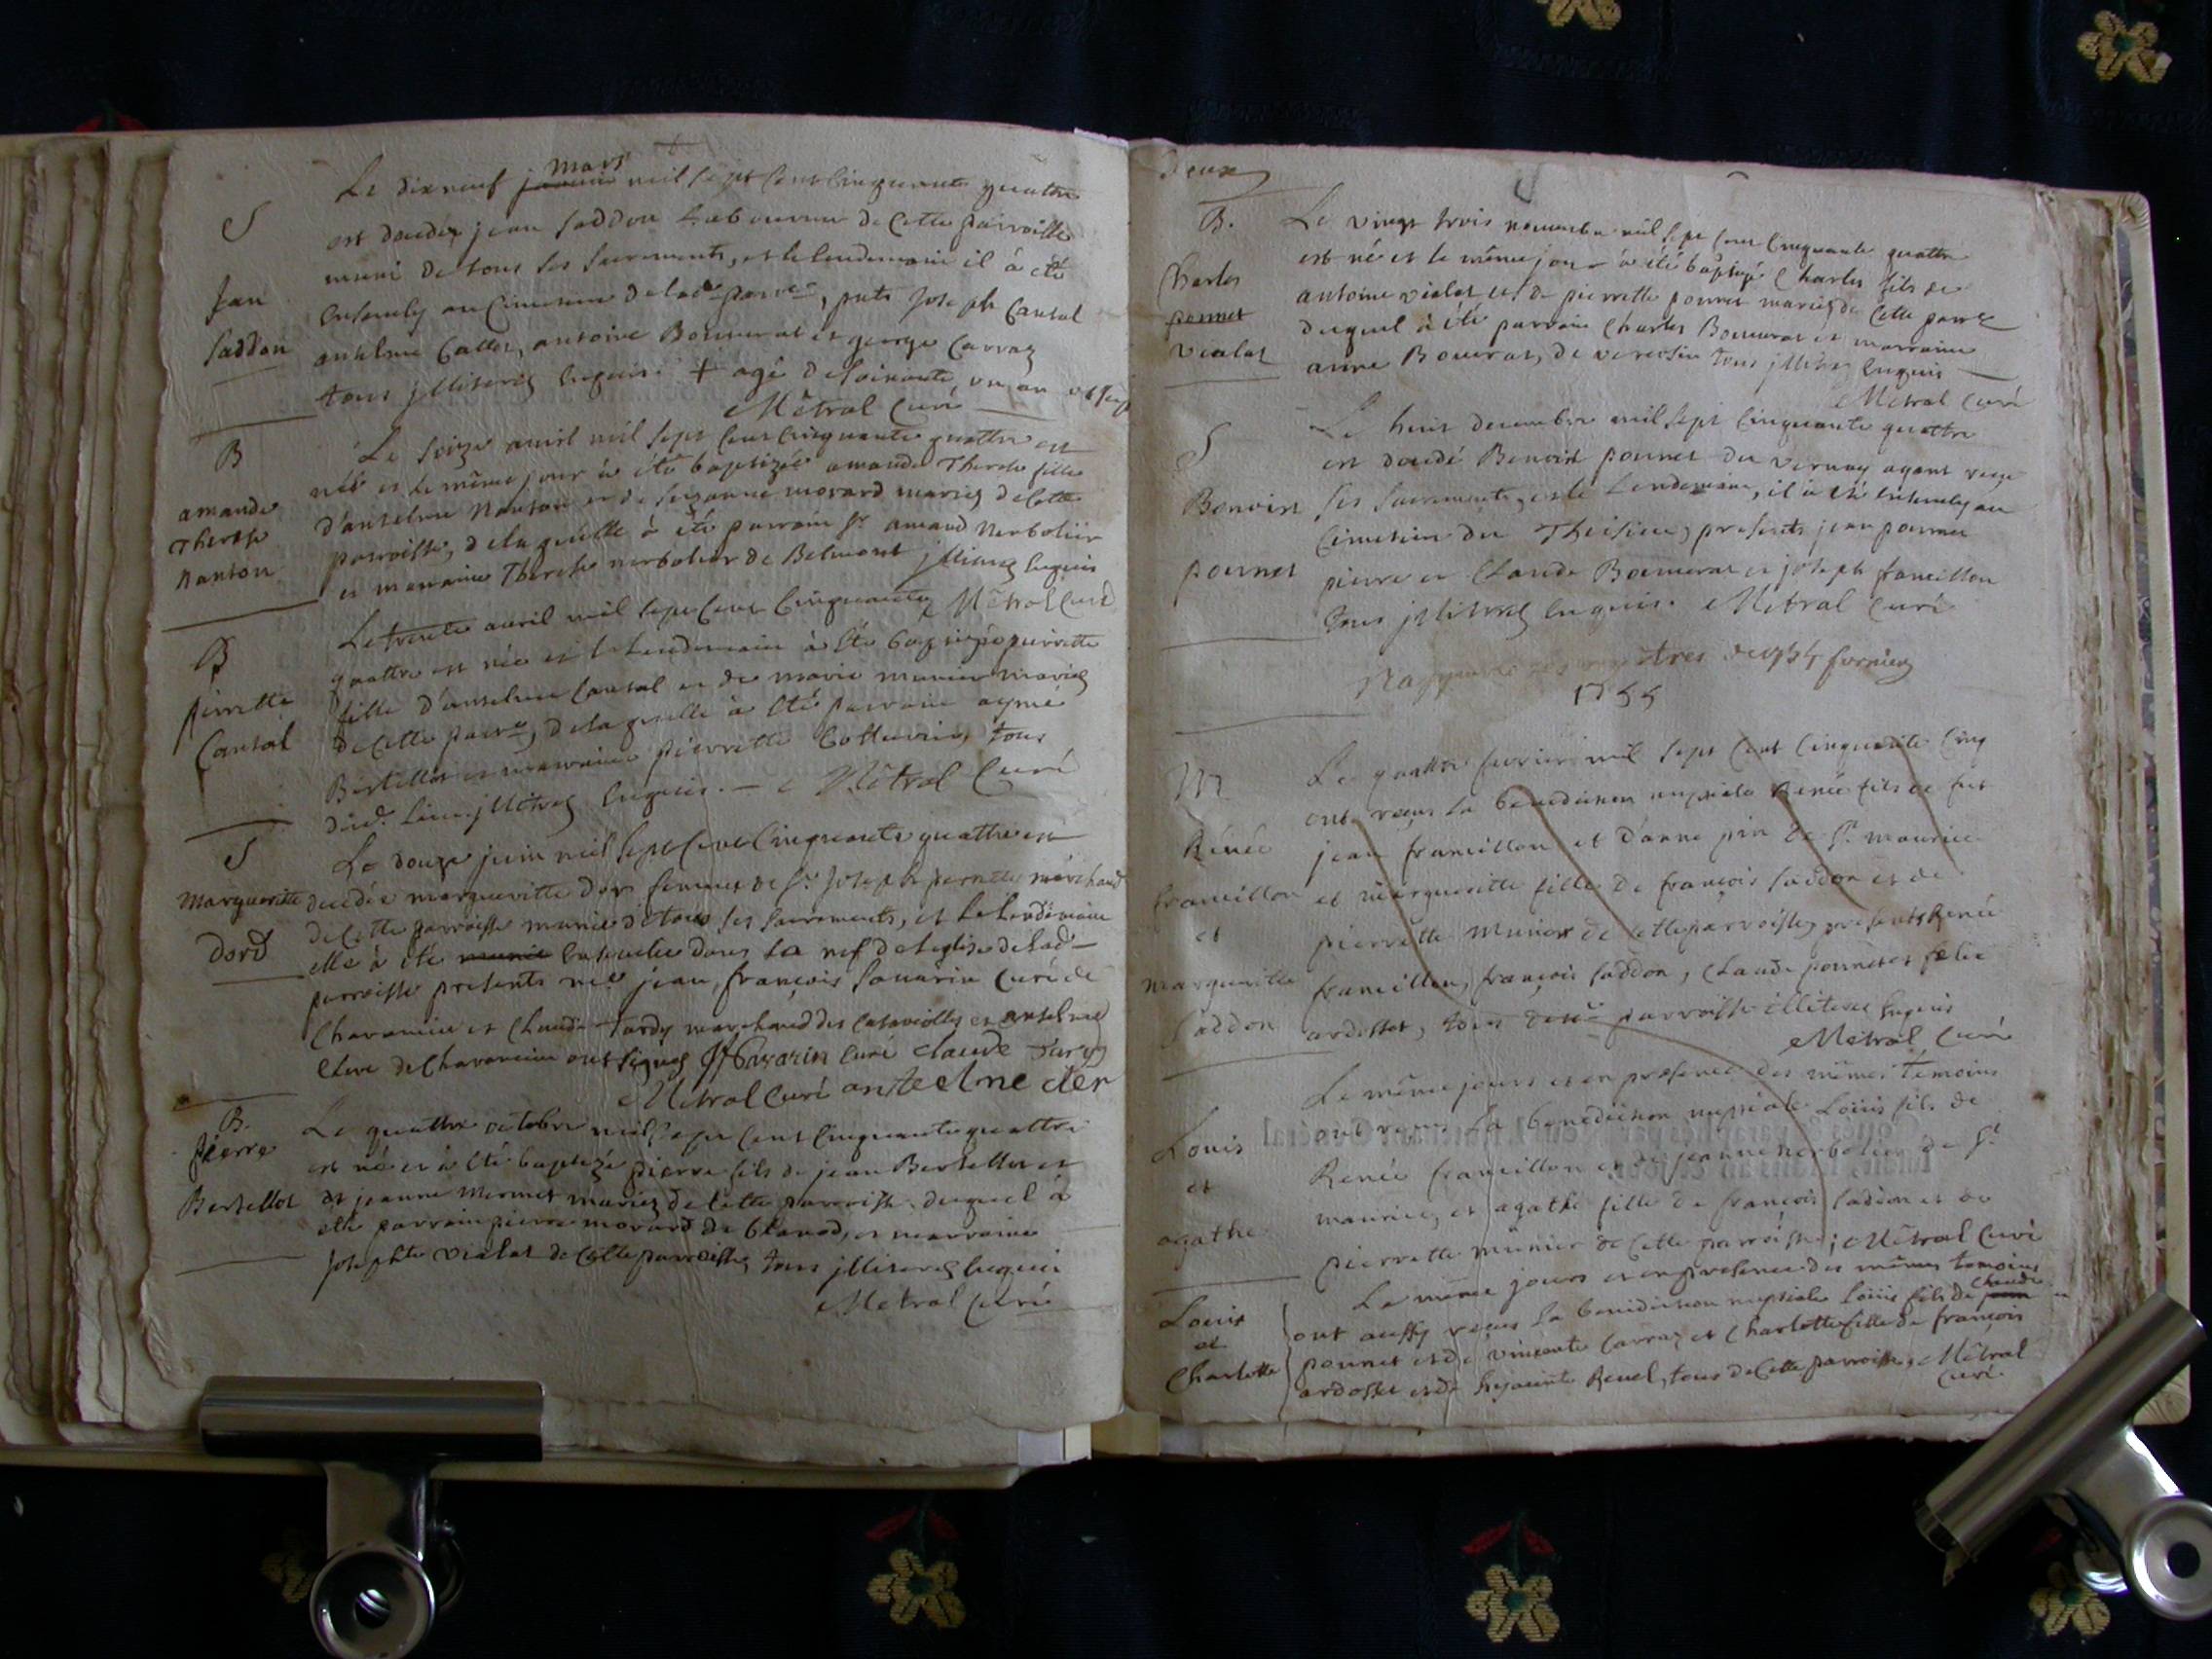 Le dix neuf mars mil sept cent cinquante quattre
S
est decedez jean saddon Laboureur de Cette parroisse
muni de tous ses sacrements, et le lendemain il à été
Jean
Ensevely au Cimetiere de lad. parr., pnts Joseph Cantal
Saddon
anselme antoine Bonnerat et george Carraz
tous jlliterez Enquis. + agé de soixante, un an
Mêtral Curé
B
Le seize avril mil sept cent cinquante quattre est
née et le même jour à été baptizée amande Therese fille
amande
Therese
nanton
d'anselme Nanton et de susanne morard mariez de Cette
parroisse, de laquelle à été parrain Sr. amand Nerbolier
et marraine Therese nerbolier de Belmont jlliterez Enquis
Mêtral Curé
Le trente avril mil sept cent Cinquante
B
quattre est née et le Lendemain à été baptizée pierrette
pierrette
Cantal
fille d'anselme Cantal et de marie munier mariez
de Cette parr., de laquelle à été parrain aymé
Bertellot et marraine pierrette tous
dud. Lieu jlliterez Enquis. Mêtral Curé
S
Le douze juin mil sept cent Cinquante quattre est
Marguerite
dord
decedée marguerite dord femme de Sr. Joseph pernette marchand
de Cette parroisse munie de tous ses sacrements, et le Lendemain
elle à été munie Ensevelie dans la nef de leglise de lad.
parroisse presents jean, françois Savarin Curé de
Charancin et Claude Tardy marchand des et anselme
Clerc de Charancin ont signez Savarin Curé Claude Tardy
Mêtral Curé anteelme cler
B.
Pierre
Bertellot
Le quattre octobre mil sept cent cinquante quattre
est né et à été baptizé pierre fils de jean Bertellot et
de jeanne Mermet mariez de Cette parroisse duquel à
été parrain pierre morard de et marraine
Josephte Vialat de Cette parroisse, tous jlliterez Enquis
Metral Curé
Deux
B.
Le vingt trois novembre mil sept cent Cinquante quattre
est né et le même jour à été baptizé Charles fils de
Charles
ponnet
Vialat
antoine vialat et de pierrette ponnet mariez de Cette parr.
duquel à été parrain Charles Bonnerat et marraine
anne Bonerat, de tous jlliterez Enquis
Metral Curé
Le huit decembre mil sept Cinquante quattre
S
est decedé Benoist ponnet du vernay ayant reçu
Benoist
ponnet
ses sacrements, et le Lendemain, il à été Ensevely au
Cimetiere du presents jean ponnet
pierre et Claude Bonnerat et joseph francillon
Tous jlliterez Enquis. Metral Curé
1755
M
Le quattre fevrier mil sept cent Cinquante Cinq
ont reçus la benediction nuptiale Renée fils de fut
Renée
francillon
et
marguerite
Saddon
jean francillon et d'anne pin de St. maurice
et marguerite fille de françois saddon et de
pierrette munier de cette parroisse, presents Renée
francillon, françois saddon, Claude ponnet et felix
ardosset, tous parroisse illiterez Enquis
Metral Curé
Le même jours et en presence des mêmes temoins
Louis
et
agathe
ont reçus la benediction nuptiale Louis fils de
Renée francillon et de jeanne nerbolier de St.
maurice, et agathe fille de françois saddon et de
pierrette munier de Cette parroisse; Mêtral Curé
Le même jours et en presence des mêmes temoins
Claude
Louis
et
Charlotte
ont aussy reçus la benediction nuptiale Louis fils de jean
ponnet et de vincente Carraz et Charlotte fille de françois
ardosset et de hyacinte Revel, tous de Cette parroisse, Mêtral
Curé.